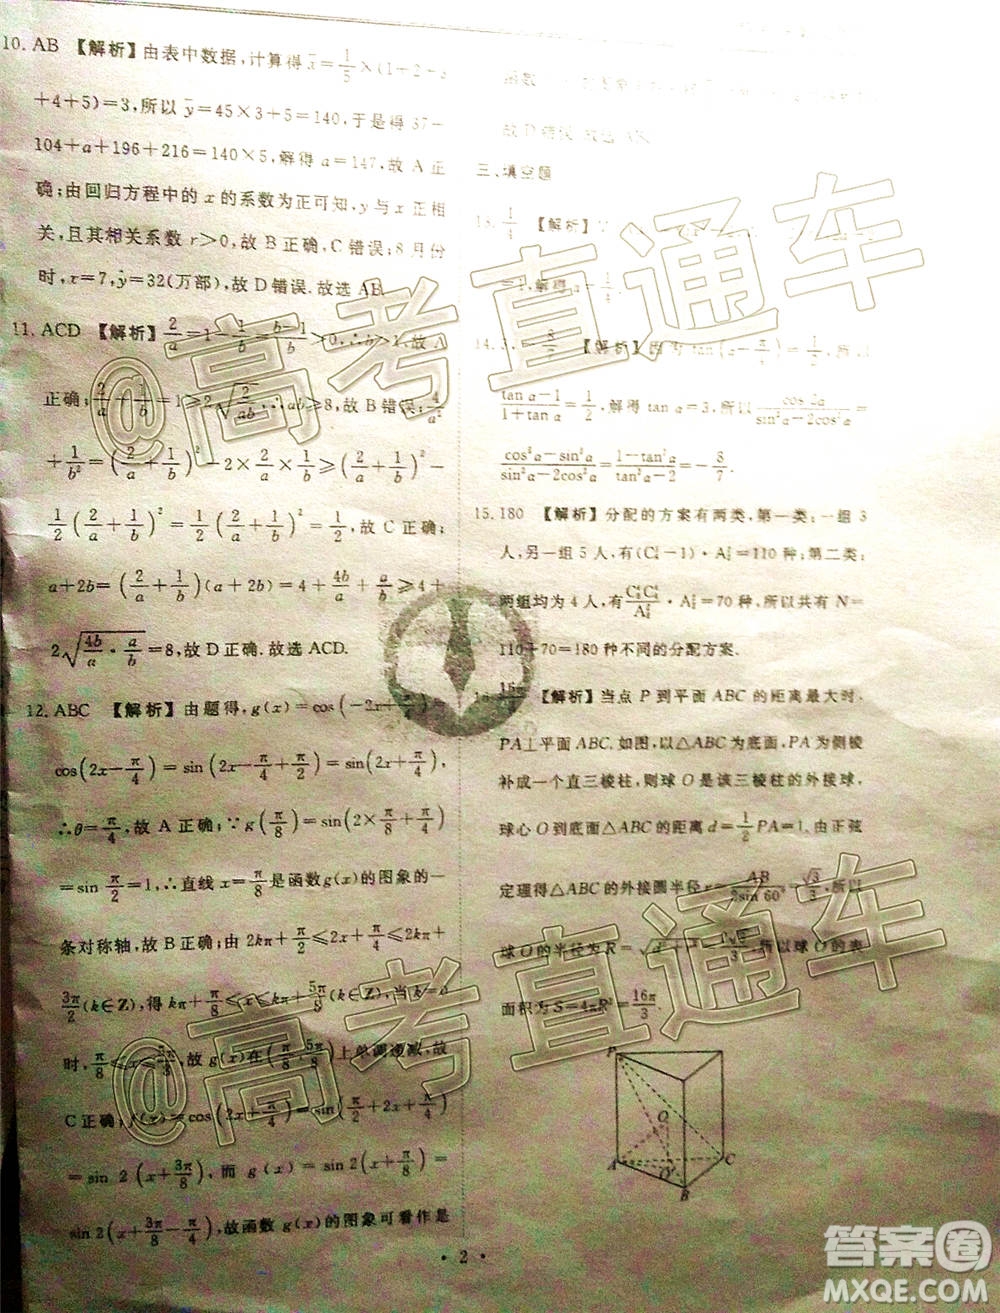 10. AB 【解析】由表中数据,计算得 x̄=1/5×(1+2+3
+4+5)=3,所以 ȳ=45×3+5=140,于是得 37+
104+a+196+216=140×5,解得 a=147,故 A 正
确;由回归方程中的 x 的系数为正可知,y 与 x 正相
关,且其相关系数 r>0,故 B 正确,C 错误;8 月份
时,x=7,ŷ=32(万部),故 D 错误.故选 AB.
11. ACD 【解析】2/a=1-1/b=(b-1)/b>0,∴b>1,故 A
正确;2/a+1/b=1≥2√(2/ab),∴ab≥8,故 B 错误;4/a²
+1/b²=(2/a+1/b)²-2×2/a×1/b≥(2/a+1/b)²-
1/2(2/a+1/b)²=1/2(2/a+1/b)²=1/2,故 C 正确;
a+2b=(2/a+1/b)(a+2b)=4+4b/a+a/b≥4+
2√(4b/a·a/b)=8,故 D 正确.故选 ACD.
12. ABC 【解析】由题得,g(x)=cos(-2x+π/4)=
cos(2x-π/4)=sin(2x-π/4+π/2)=sin(2x+π/4),
∴θ=π/4,故 A 正确;∵g(π/8)=sin(2×π/8+π/4)
=sin π/2=1,∴直线 x=π/8 是函数 g(x)的图象的一
条对称轴,故 B 正确;由 2kπ+π/2≤2x+π/4≤2kπ+
3π/2(k∈Z),得 kπ+π/8≤x≤kπ+5π/8(k∈Z),当 k=0
时,π/8≤x≤5π/8,故 g(x)在(π/8,5π/8)上单调递减,故
C 正确;f(x)=cos(2x+π/4)=sin(π/2+2x+π/4)
=sin 2(x+3π/8),而 g(x)=sin(2x+π/4)=
sin 2(x+3π/8-π/4),故函数 g(x)的图象可看作是
函数
故 D 错误.故选 ABC.
三、填空题
13. 1/4 【解析】
=1,解得 a=1/4.
14. 3 -8/7 【解析】因为 tan(α-π/4)=1/2,所以
(tan α-1)/(1+tan α)=1/2,解得 tan α=3,所以 cos 2α/(sin²α-2cos²α)=
(cos²α-sin²α)/(sin²α-2cos²α)=(1-tan²α)/(tan²α-2)=-8/7.
15. 180 【解析】分配的方案有两类,第一类:一组 3
人,另一组 5 人,有(C₈³-1)·A₂²=110 种;第二类:
两组均为 4 人,有 C₈⁴C₄⁴/A₂²·A₂²=70种,所以共有 N=
110+70=180 种不同的分配方案.
16. 16π/3 【解析】当点 P 到平面 ABC 的距离最大时,
PA⊥平面 ABC.如图,以△ABC 为底面,PA 为侧棱
补成一个直三棱柱,则球 O 是该三棱柱的外接球,
球心 O 到底面△ABC 的距离 d=1/2 PA=1.由正弦
定理得△ABC 的外接圆半径 r=AB/(2sin 60°)=√3/3,所以
球 O 的半径为 R=√(d²+r²)=2√3/3,所以球 O 的表
面积为 S=4πR²=16π/3.
P
O
A
O′
C
B
· 2 ·
@高考直通车
@高考直通车
答案圈
MXQE.COM